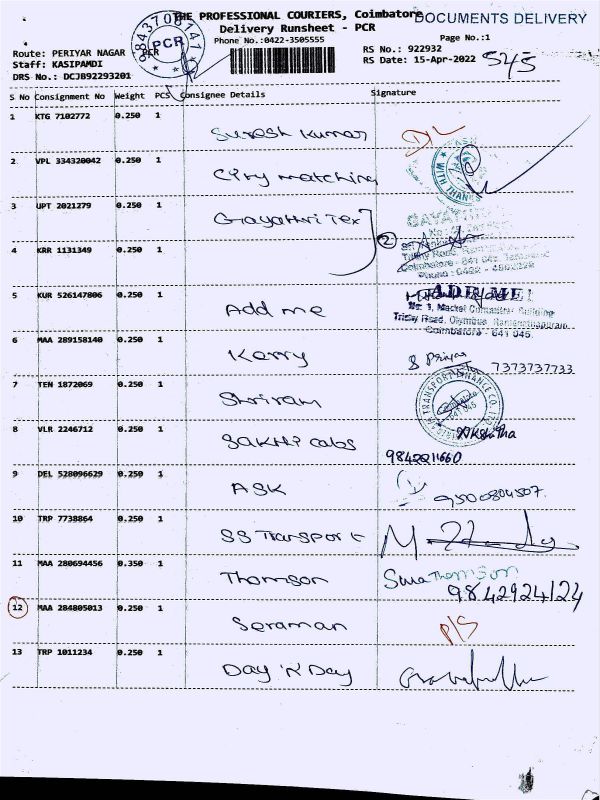 THE PROFESSIONAL COURIERS, Coimbatore
DOCUMENTS DELIVERY
Delivery Runsheet - PCR
Phone No.:0422-3505555
Page No.:1
Route: PERIYAR NAGAR PCR
RS No.: 922932
Staff: KASIPAMDI
RS Date: 15-Apr-2022
DRS No.: DCJB92293201
9843708741
PCR
545
S No Consignment No Weight PCS Consignee Details Signature
1 KTG 7102772 0.250 1 Suresh Kumar
2 VPL 334320042 0.250 1 City matching
WITH THANKS
3 UPT 2021279 0.250 1 Gayathri Tex
2
4 KRR 1131349 0.250 1
Coimbatore - 641 045.
5 KUR 526147806 0.250 1 Add me
ADD ME
Trichy Road, Olympus, Ramanathapuram,
Coimbatore - 641 045.
6 MAA 289158140 0.250 1 Kerry
7373737733
7 TEN 1872069 0.250 1 Shriram
TRANSPORT FINANCE CO. LTD
8 VLR 2246712 0.250 1 Sakthi cabs
Akshitha
9842211660
9 DEL 528096629 0.250 1 ASK 9500804507.
10 TRP 7738864 0.250 1 SS Transport
11 MAA 280694456 0.350 1 Thomson
Thomson
9842924124
12 MAA 284805013 0.250 1 Seraman P/S
13 TRP 1011234 0.250 1 Day 'N' Day